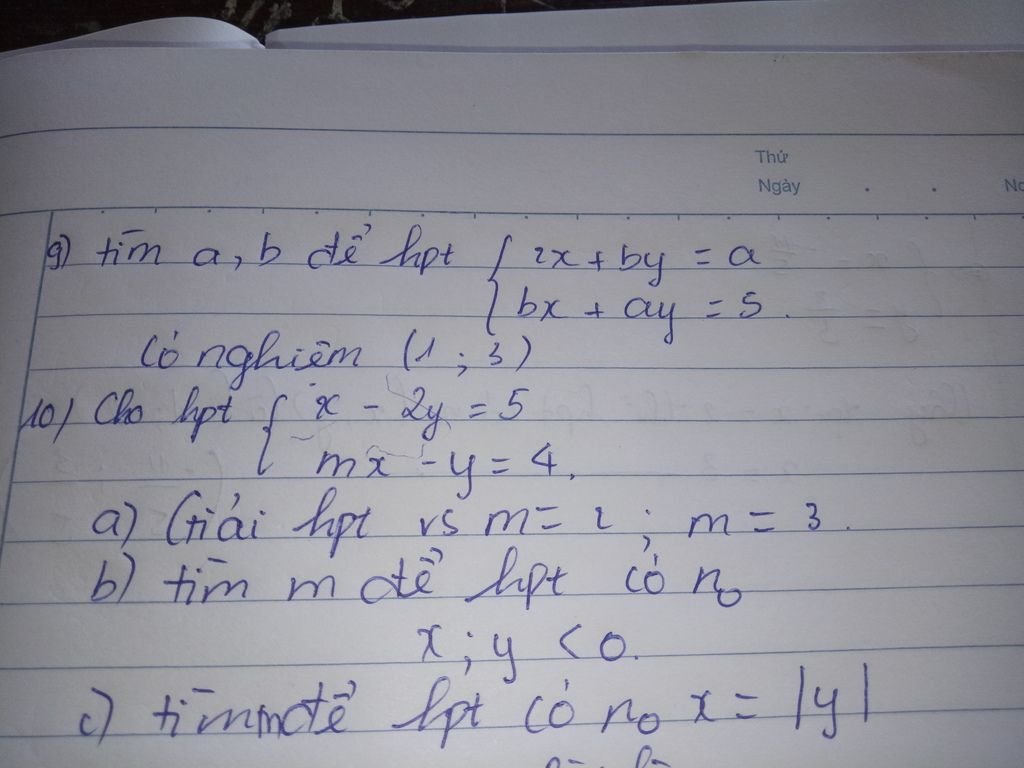 Thứ
Ngày
9) tìm a, b để hpt { 2x + by = a
bx + ay = 5.
có nghiệm (1 ; 3)
10) Cho hpt { x - 2y = 5
mx - y = 4.
a) Giải hpt vs m = 2 ; m = 3.
b) tìm m để hpt có n₀
x ; y < 0.
c) tìm m để hpt có n₀ x = |y|